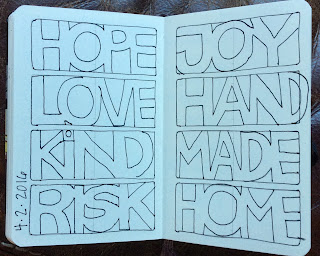 HOPE
LOVE
KiND
RISK
4.2.2016
JOY
HAND
MADE
HOME